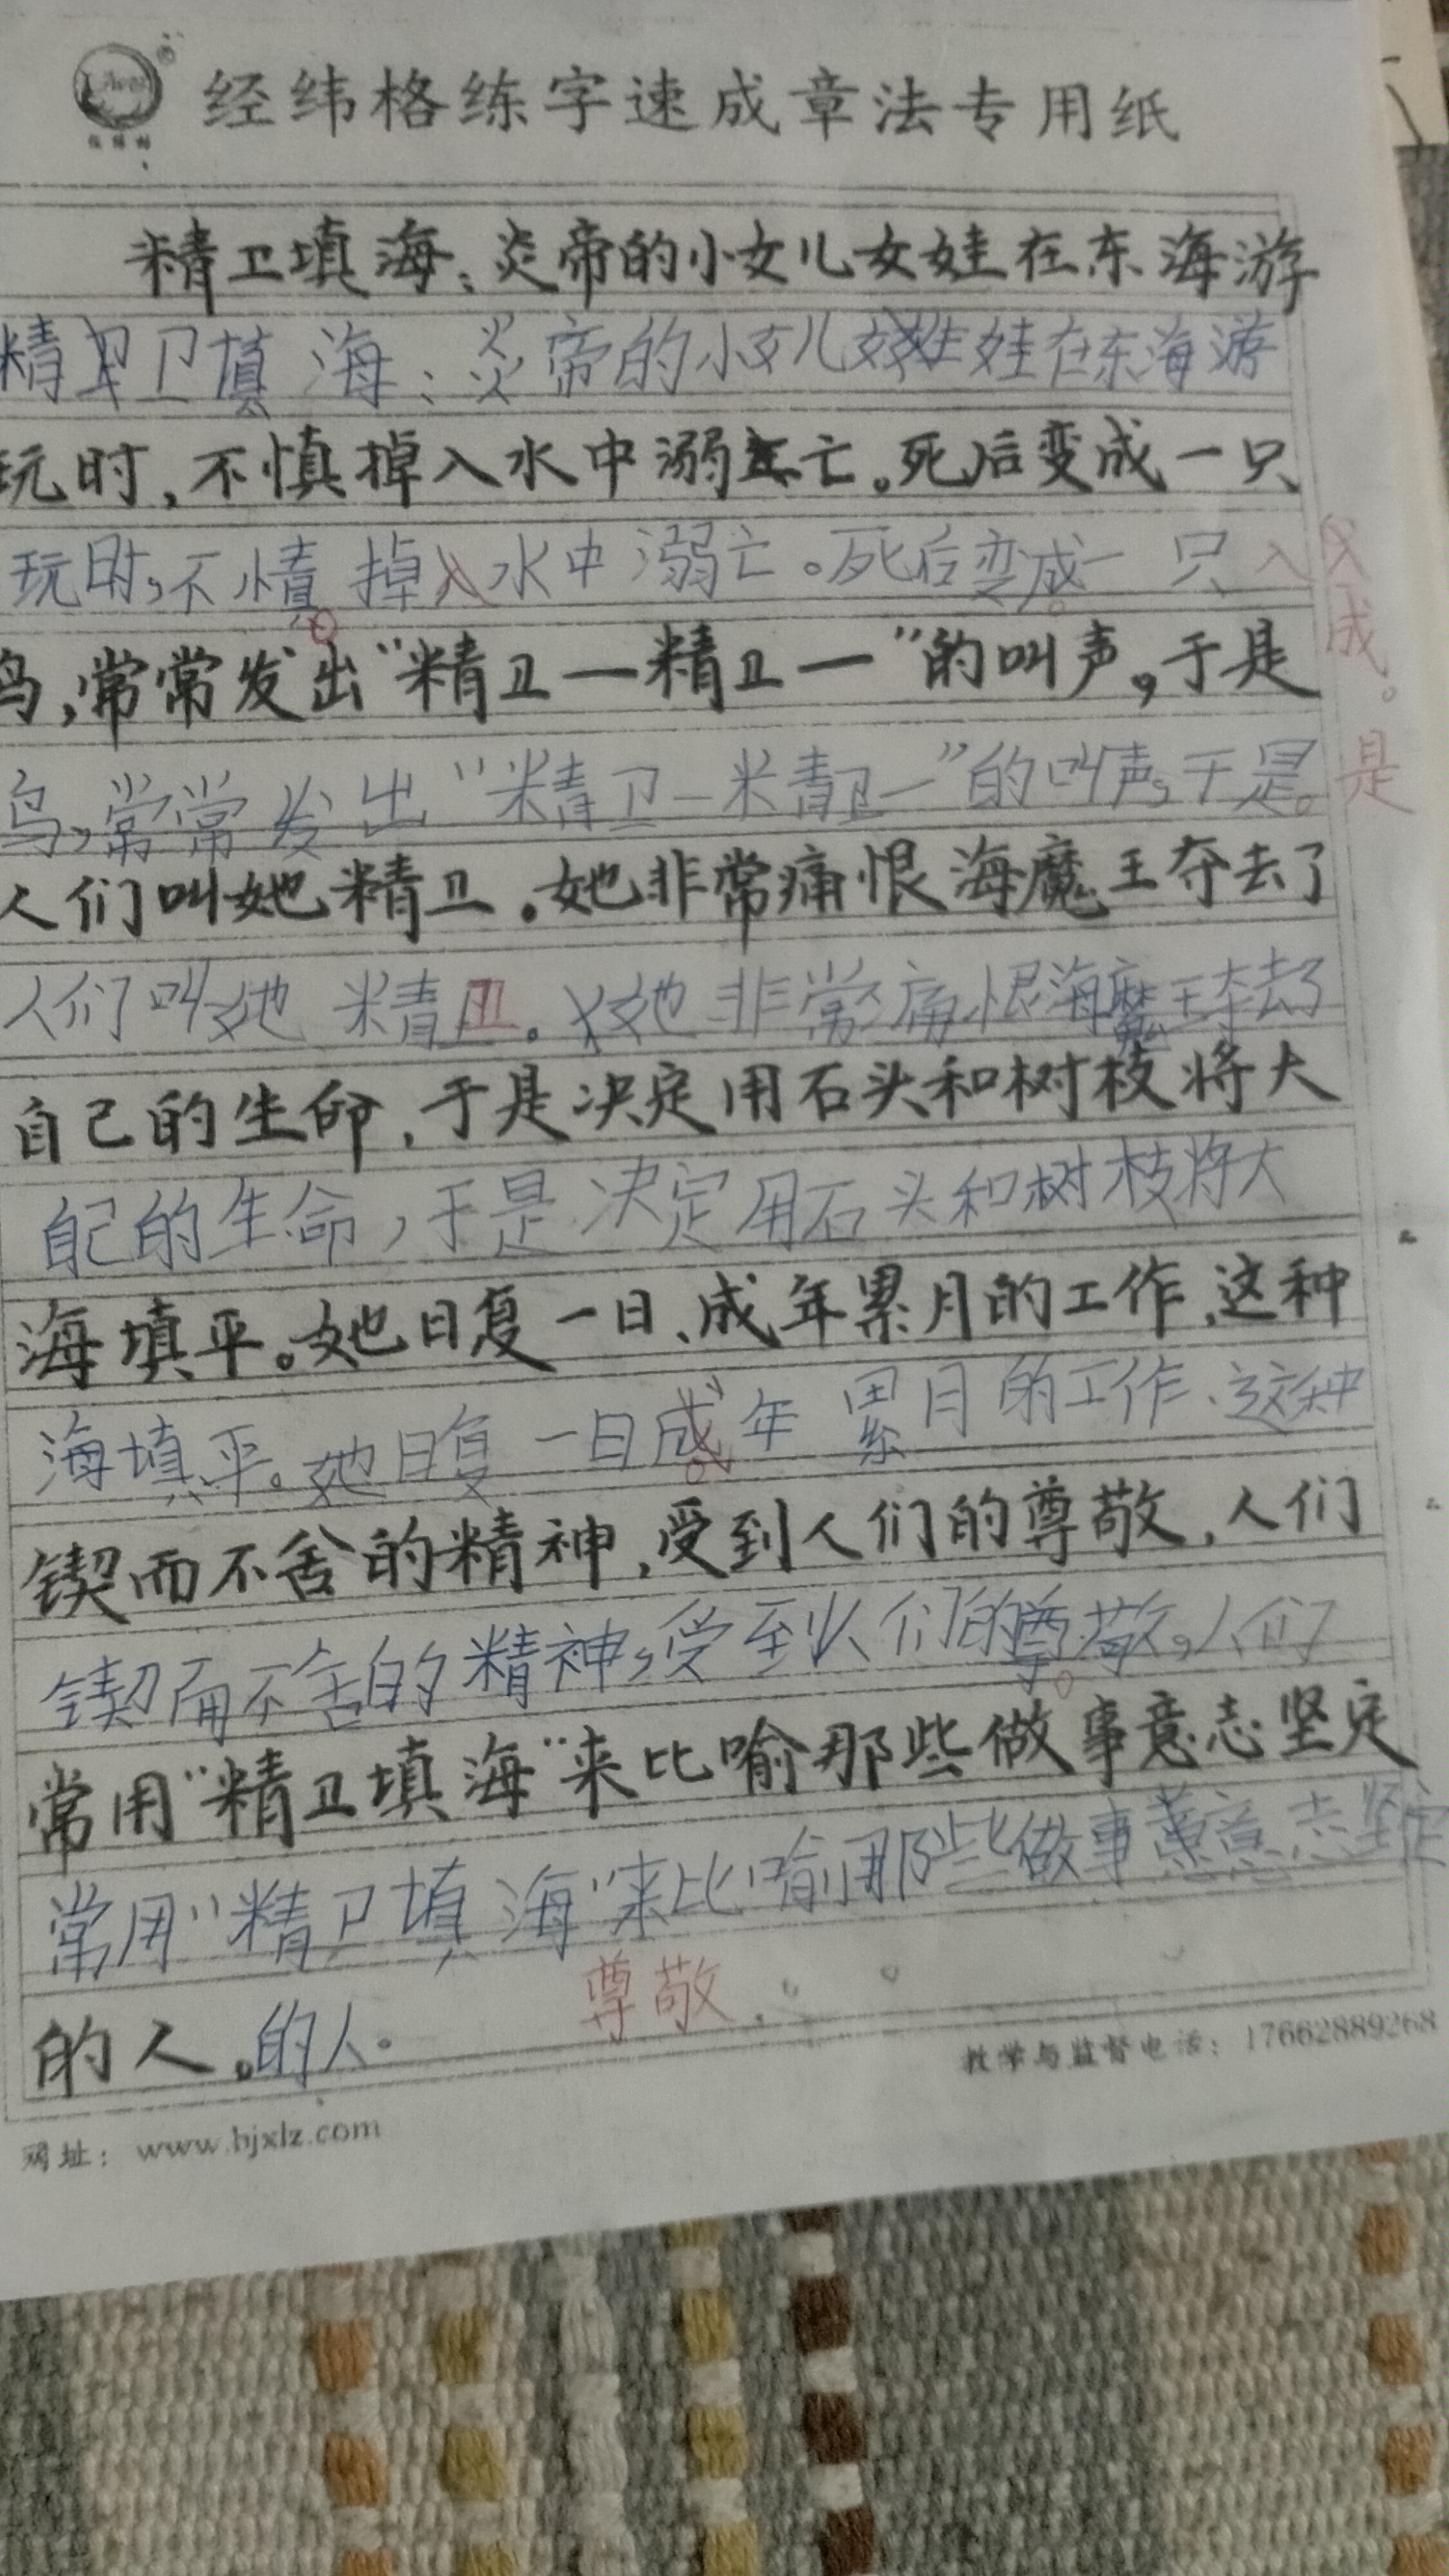 经纬格练字速成章法专用纸
精卫填海:炎帝的小女儿女娃在东海游
精卫填海:炎帝的小女儿娃在东海游
玩时,不慎掉入水中溺亡。死后变成一只
玩时,不慎掉入水中溺亡。死后变成一只 入
成。
鸟,常常发出“精卫一精卫一”的叫声,于是
鸟,常常发出“精卫一精卫一”的叫声,于是。 是
人们叫她精卫。她非常痛恨海魔王夺去了
人们叫她精卫。她非常痛恨海魔王夺去了
自己的生命,于是决定用石头和树枝将大
自己的生命,于是决定用石头和树枝将大
海填平。她日复一日、成年累月的工作,这种
海填平。她日复一日成年累月的工作、这种
锲而不舍的精神,受到人们的尊敬,人们
锲而不舍的精神,受到人们的尊敬,人们
常用“精卫填海”来比喻那些做事意志坚定
常用“精卫填海”来比喻那些做事意志坚定
尊敬
的人。的人.
教学与监督电话:17662889268
网址:www.hjxlz.com